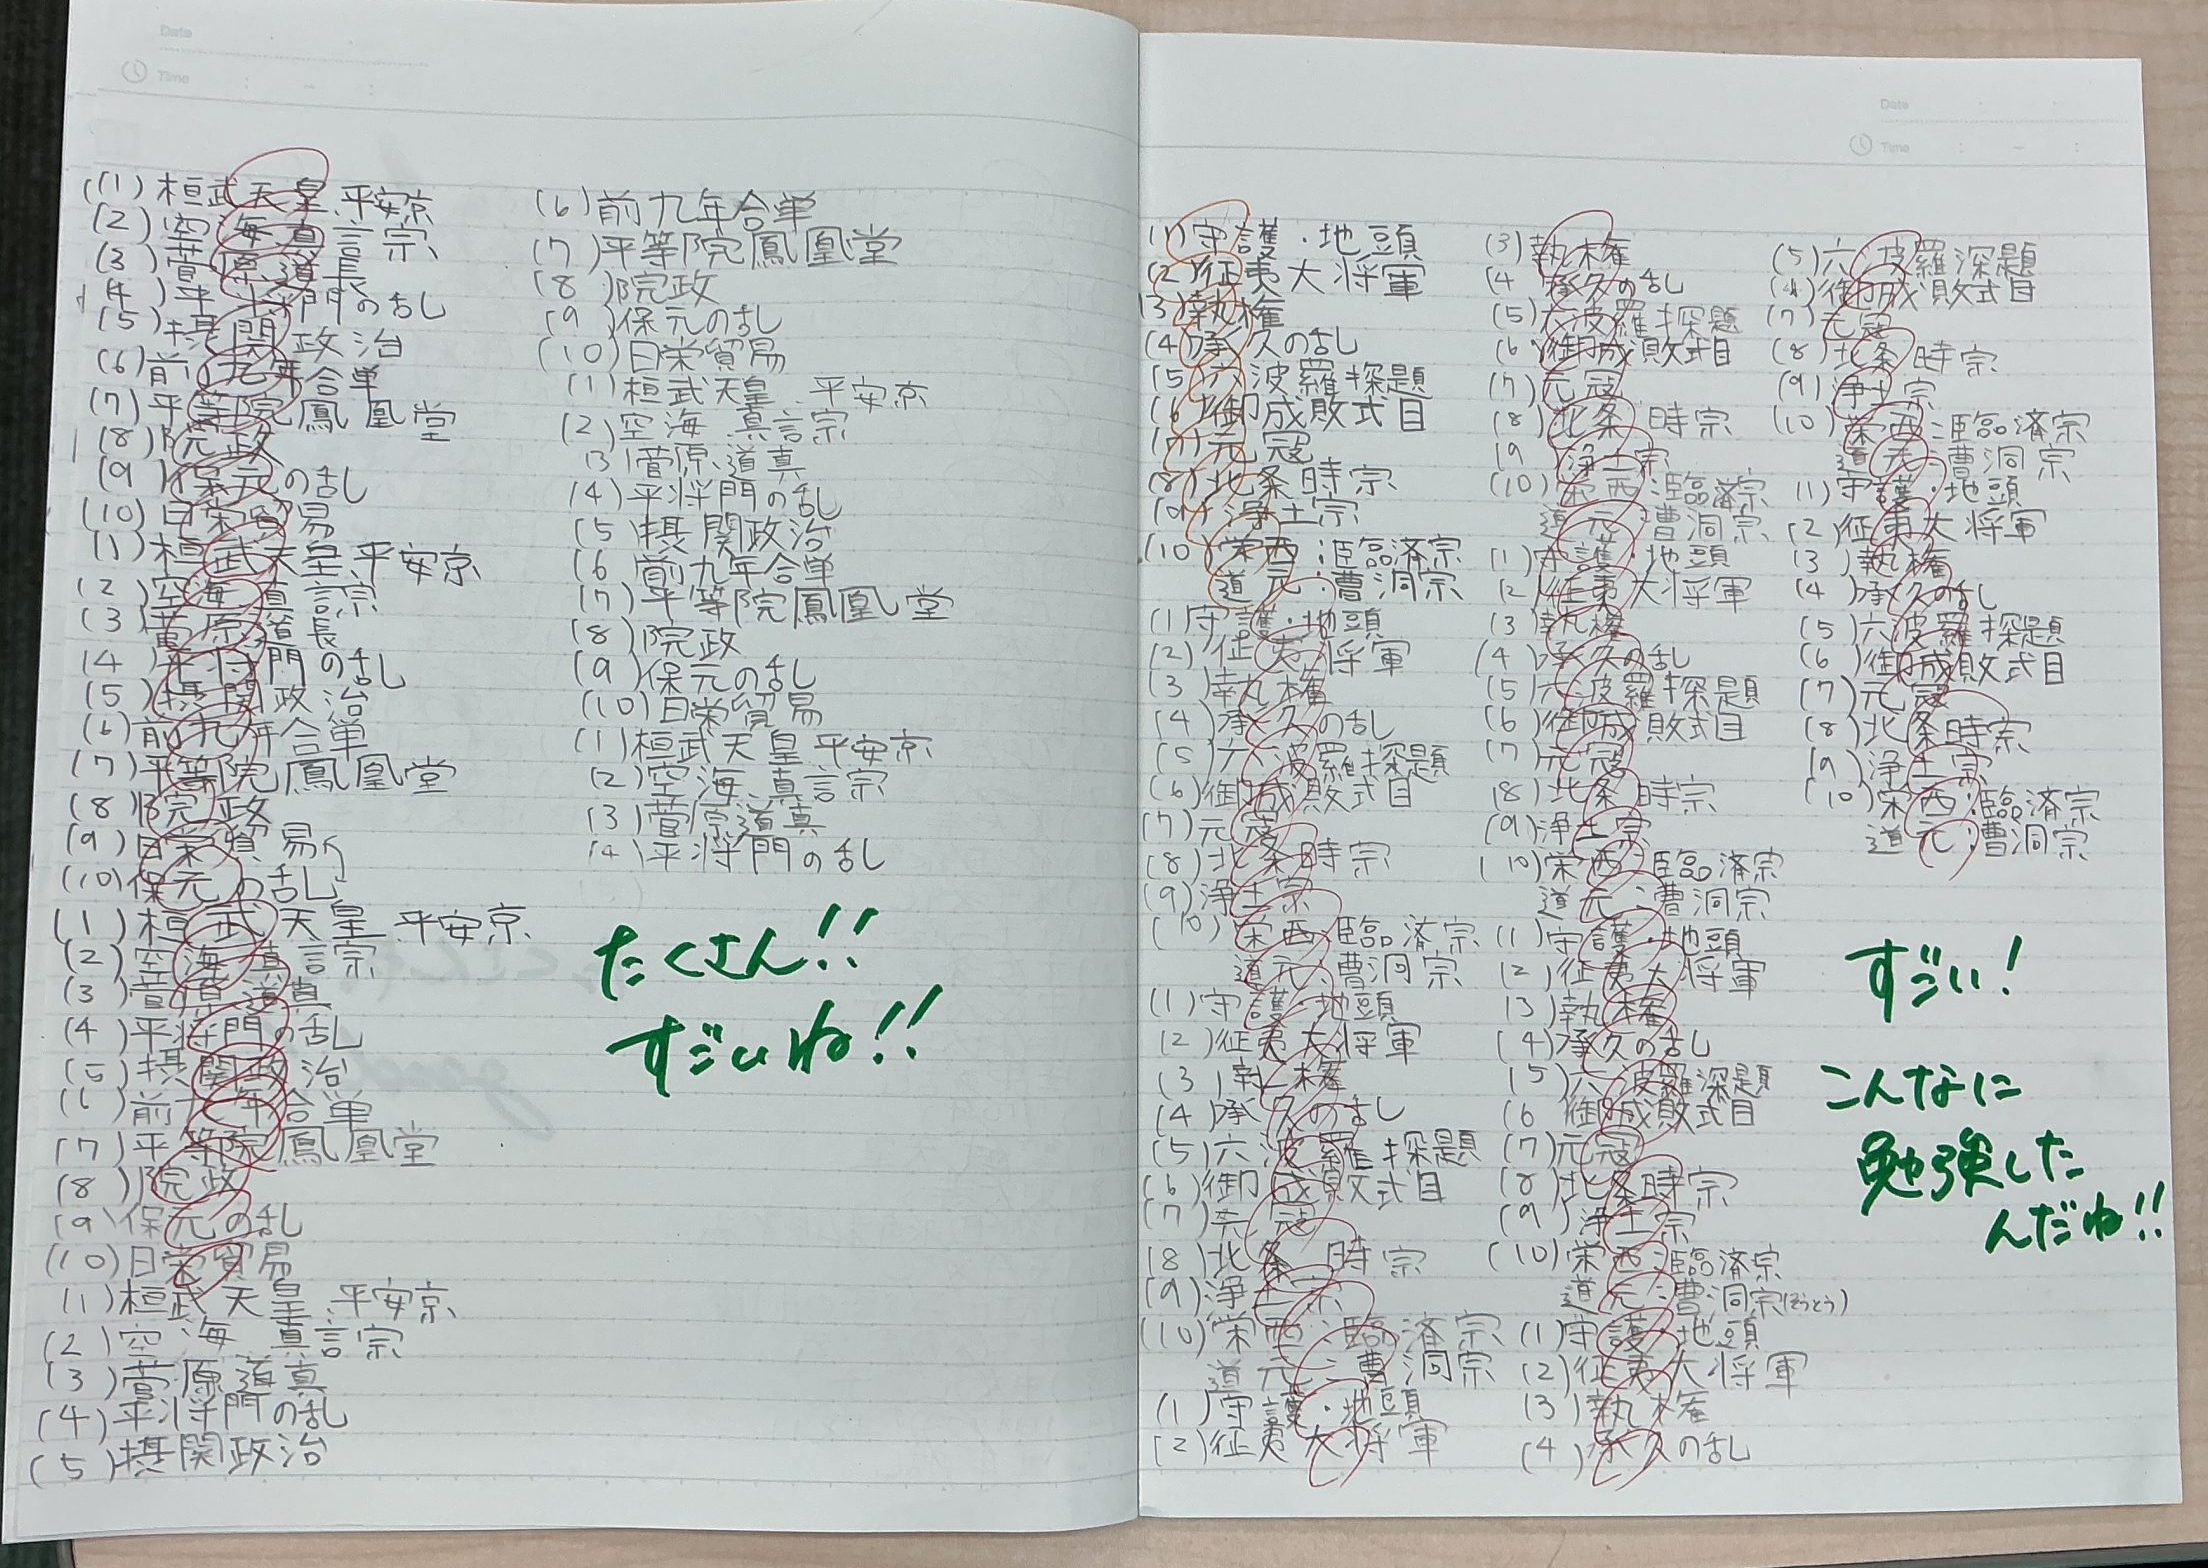 Date
Time
(1) 桓武天皇、平安京
(2) 空海 真言宗
(3) 菅原道長
(4) 平将門の乱
(5) 摂関政治
(6) 前九年合単
(7) 平等院鳳凰堂
(8) 院政
(9) 保元の乱
(10) 日栄貿易
(1) 桓武天皇、平安京
(2) 空海 真言宗
(3) 菅原道長
(4) 平将門の乱
(5) 摂関政治
(6) 前九年合単
(7) 平等院鳳凰堂
(8) 院政
(9) 日栄貿易
(10) 保元の乱
(1) 桓武天皇、平安京
(2) 空海 真言宗
(3) 菅原道真
(4) 平将門の乱
(5) 摂関政治
(6) 前九年合単
(7) 平等院鳳凰堂
(8) 院政
(9) 保元の乱
(10) 日栄貿易
(1) 桓武天皇、平安京
(2) 空海 真言宗
(3) 菅原道真
(4) 平将門の乱
(5) 摂関政治
(6) 前九年合単
(7) 平等院鳳凰堂
(8) 院政
(9) 保元の乱
(10) 日栄貿易
(1) 桓武天皇、平安京
(2) 空海 真言宗
(3) 菅原道真
(4) 平将門の乱
(5) 摂関政治
(6) 前九年合単
(7) 平等院鳳凰堂
(8) 院政
(9) 保元の乱
(10) 日栄貿易
(1) 桓武天皇 平安京
(2) 空海、真言宗
(3) 菅原道真
(4) 平将門の乱
たくさん!!
すごいね!!
Date
Time
(1) 守護・地頭
(2) 征夷大将軍
(3) 執権
(4) 承久の乱
(5) 六波羅探題
(6) 御成敗式目
(7) 元冦
(8) 北条時宗
(9) 浄土宗
(10) 栄西:臨済宗
道元:曹洞宗
(1) 守護・地頭
(2) 征夷将軍
(3) 執権
(4) 承久の乱
(5) 六波羅探題
(6) 御成敗式目
(7) 元冦
(8) 北条時宗
(9) 浄土宗
(10) 栄西:臨済宗
道元:曹洞宗
(1) 守護・地頭
(2) 征夷大将軍
(3) 執権
(4) 承久の乱
(5) 六波羅探題
(6) 御成敗式目
(7) 元冦
(8) 北条時宗
(9) 浄土宗
(10) 栄西:臨済宗
道元:曹洞宗
(1) 守護・地頭
(2) 征夷大将軍
(3) 執権
(4) 承久の乱
(5) 六波羅探題
(6) 御成敗式目
(7) 元冦
(8) 北条時宗
(9) 浄土宗
(10) 栄西:臨済宗
道元:曹洞宗
(1) 守護・地頭
(2) 征夷大将軍
(3) 執権
(4) 承久の乱
(5) 六波羅探題
(6) 御成敗式目
(7) 元冦
(8) 北条時宗
(9) 浄土宗
(10) 栄西:臨済宗
道元:曹洞宗
(1) 守護・地頭
(2) 征夷大将軍
(3) 執権
(4) 承久の乱
(5) 六波羅深題
(6) 御成敗式目
(7) 元冦
(8) 北条時宗
(9) 浄土宗
(10) 栄西:臨済宗
道元:曹洞宗(そうとう)
(1) 守護・地頭
(2) 征夷大将軍
(3) 執権
(4) 承久の乱
(5) 六波羅深題
(6) 御成敗式目
(7) 元冦
(8) 北条時宗
(9) 浄土宗
(10) 栄西:臨済宗
道元:曹洞宗
(1) 守護・地頭
(2) 征夷大将軍
(3) 執権
(4) 承久の乱
(5) 六波羅探題
(6) 御成敗式目
(7) 元冦
(8) 北条時宗
(9) 浄土宗
(10) 栄西:臨済宗
道元:曹洞宗
すごい!
こんなに
勉強した
んだね!!